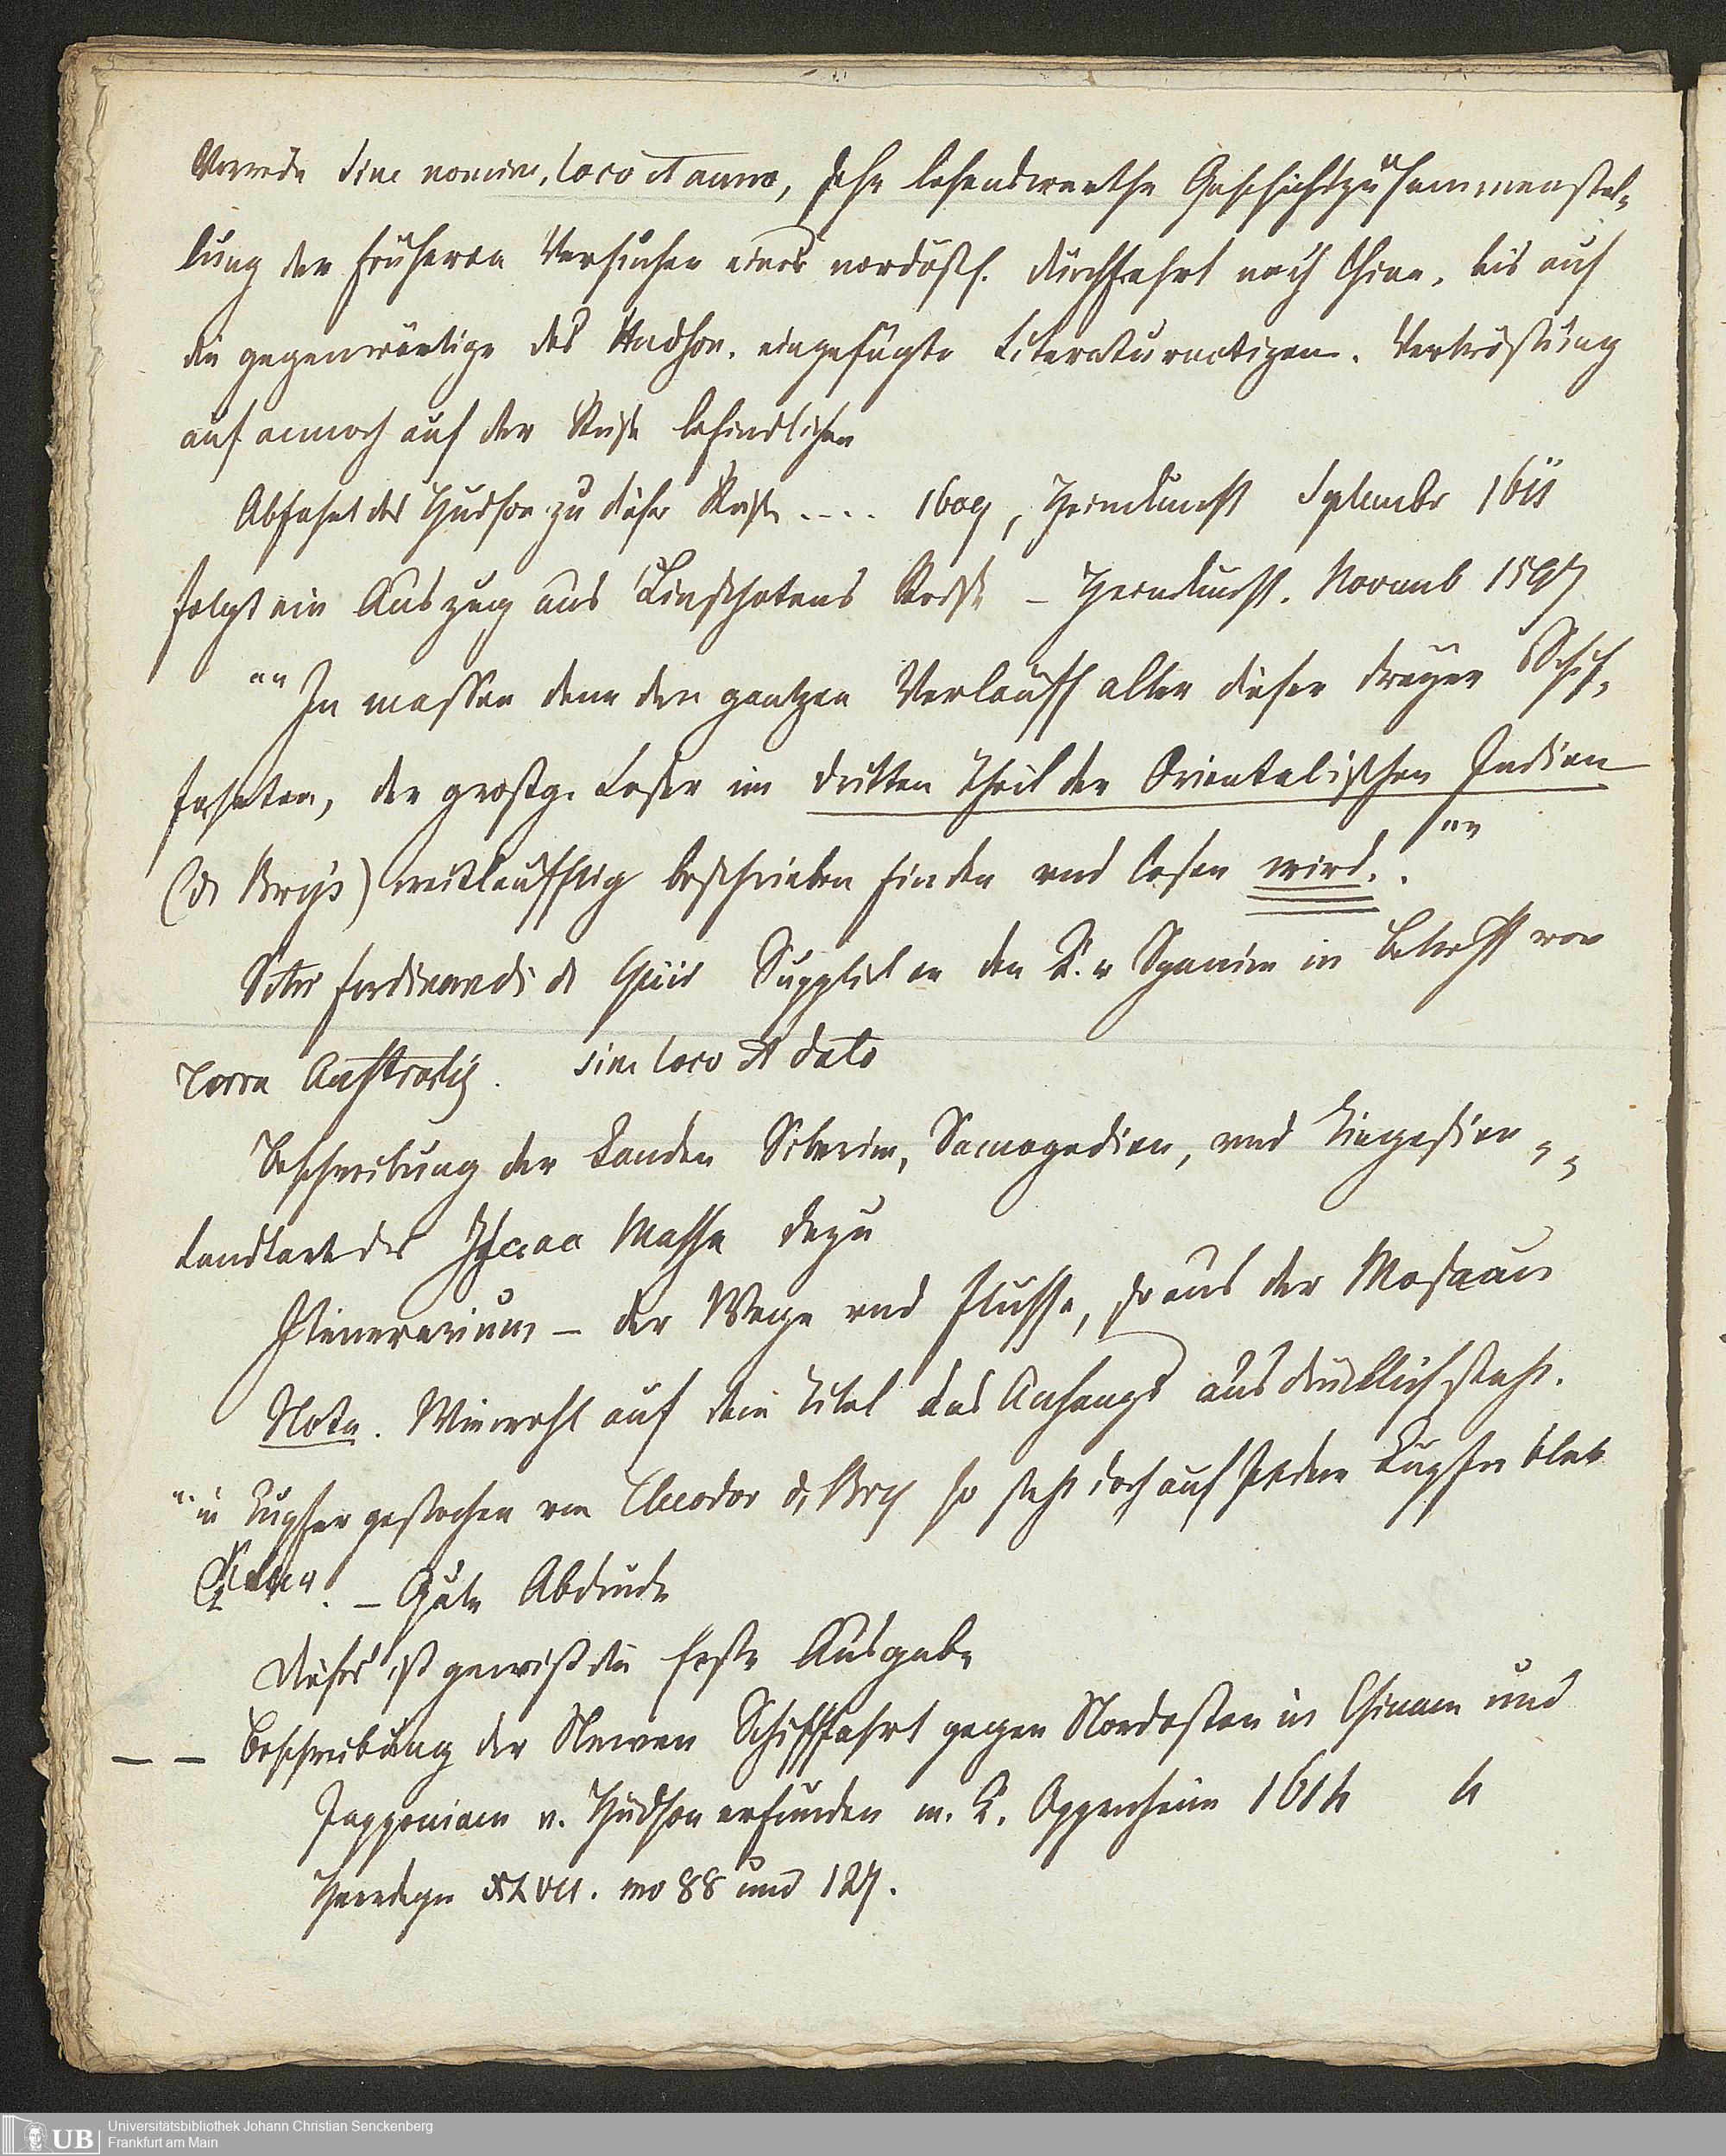 Vorrede sine nomine, loco et anno, sehr lesenswerthe Geschichtzusammenstel-
lung der früheren Versuchen einer nordöstl. durchfahrt nach China, bis auf
die gegenwärtige des Hudson. eingefügte Literaturnotizen. Vertröstung
auf annoch auf der Reise befindlichen
Abfahrt des Hudson zu dieser Reise .... 1609, Heimkunft Septembr 1611
folgt ein Auszug aus Linschotens Reise – Heimkunft. Novemb 1597
"" In massen denn den gantzen Verlauff aller dieser dreyer Schif-
fahrten, der grostg. Leser im dritten Theil der Orientalischen Indien
(de Brys) weitläuffig beschrieben finden und lesen wird. . ""
Petri Ferdinandi de Quir Supplick an den K. v Spanien in Betreff von
Terra Australis. sine loco et dato
Beschreibung der Landen Siberien, Samogedien, und Tingoesien
Landkarte des Isaac Massa dazu
Itinerarium – der Wege und Flüsse, so aus der Moscau
Nota. Wiewohl auf dem Titel des Anhangs ausdrücklich steht.
"in Kupfer gestochen von Theodor de Bry so steht doch auf jedem Kupfer blat
– Gute Abdrücke
dieses ist gewiss die Erste Ausgabe
– – Beschreibung der Newen Schifffahrt gegen Nordosten in Chinam und
Japponiam v. Hudson erfunden m. K. Oppenheim 1614 4
XLVII. no 88 und 127.
Universitätsbibliothek Johann Christian Senckenberg
Frankfurt am Main
UB